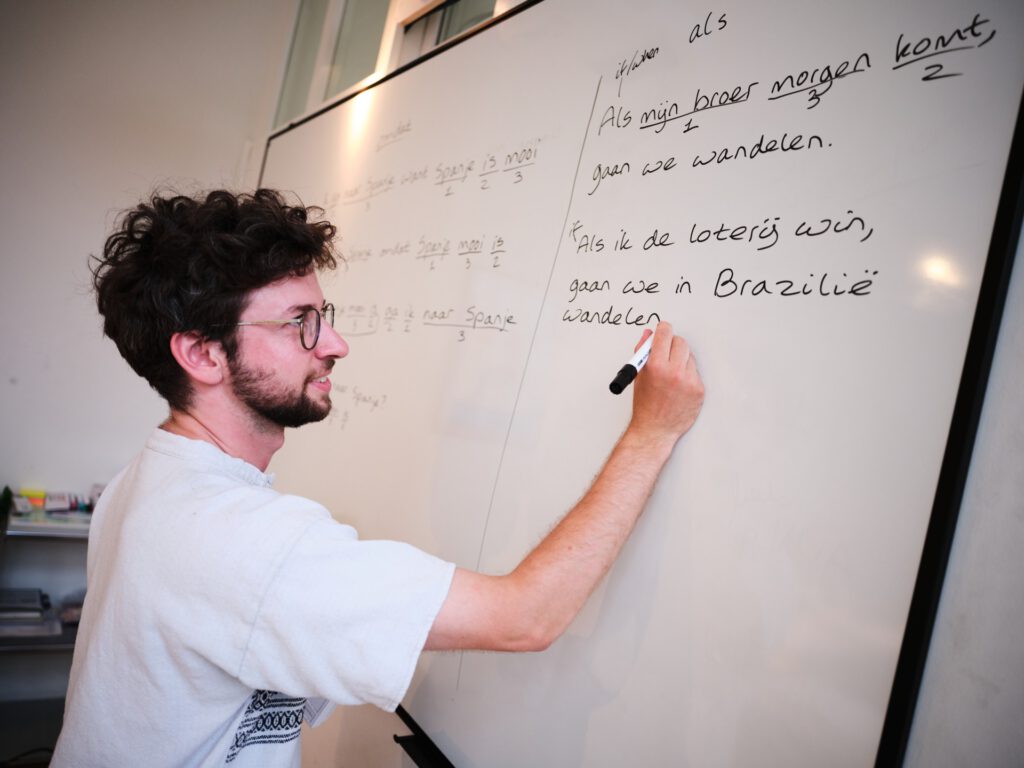 omdat
naar Spanje want Spanje is mooi
3 1 2 3
Spanje omdat Spanje mooi is
1 3 2
mooi is ga ik naar Spanje
3
Spanje?
if/when als
Als mijn broer morgen komt,
1 3 2
gaan we wandelen.
if
Als ik de loterij win,
gaan we in Brazilië
wandelen